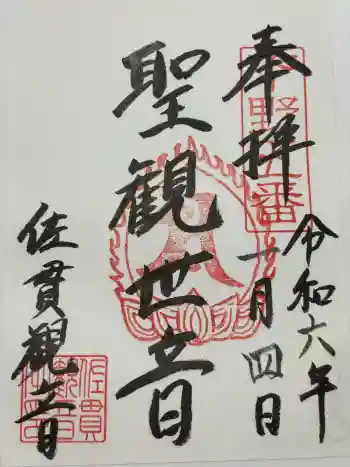 奉拝
令和六年
十月四日
聖観世音
佐貫観音